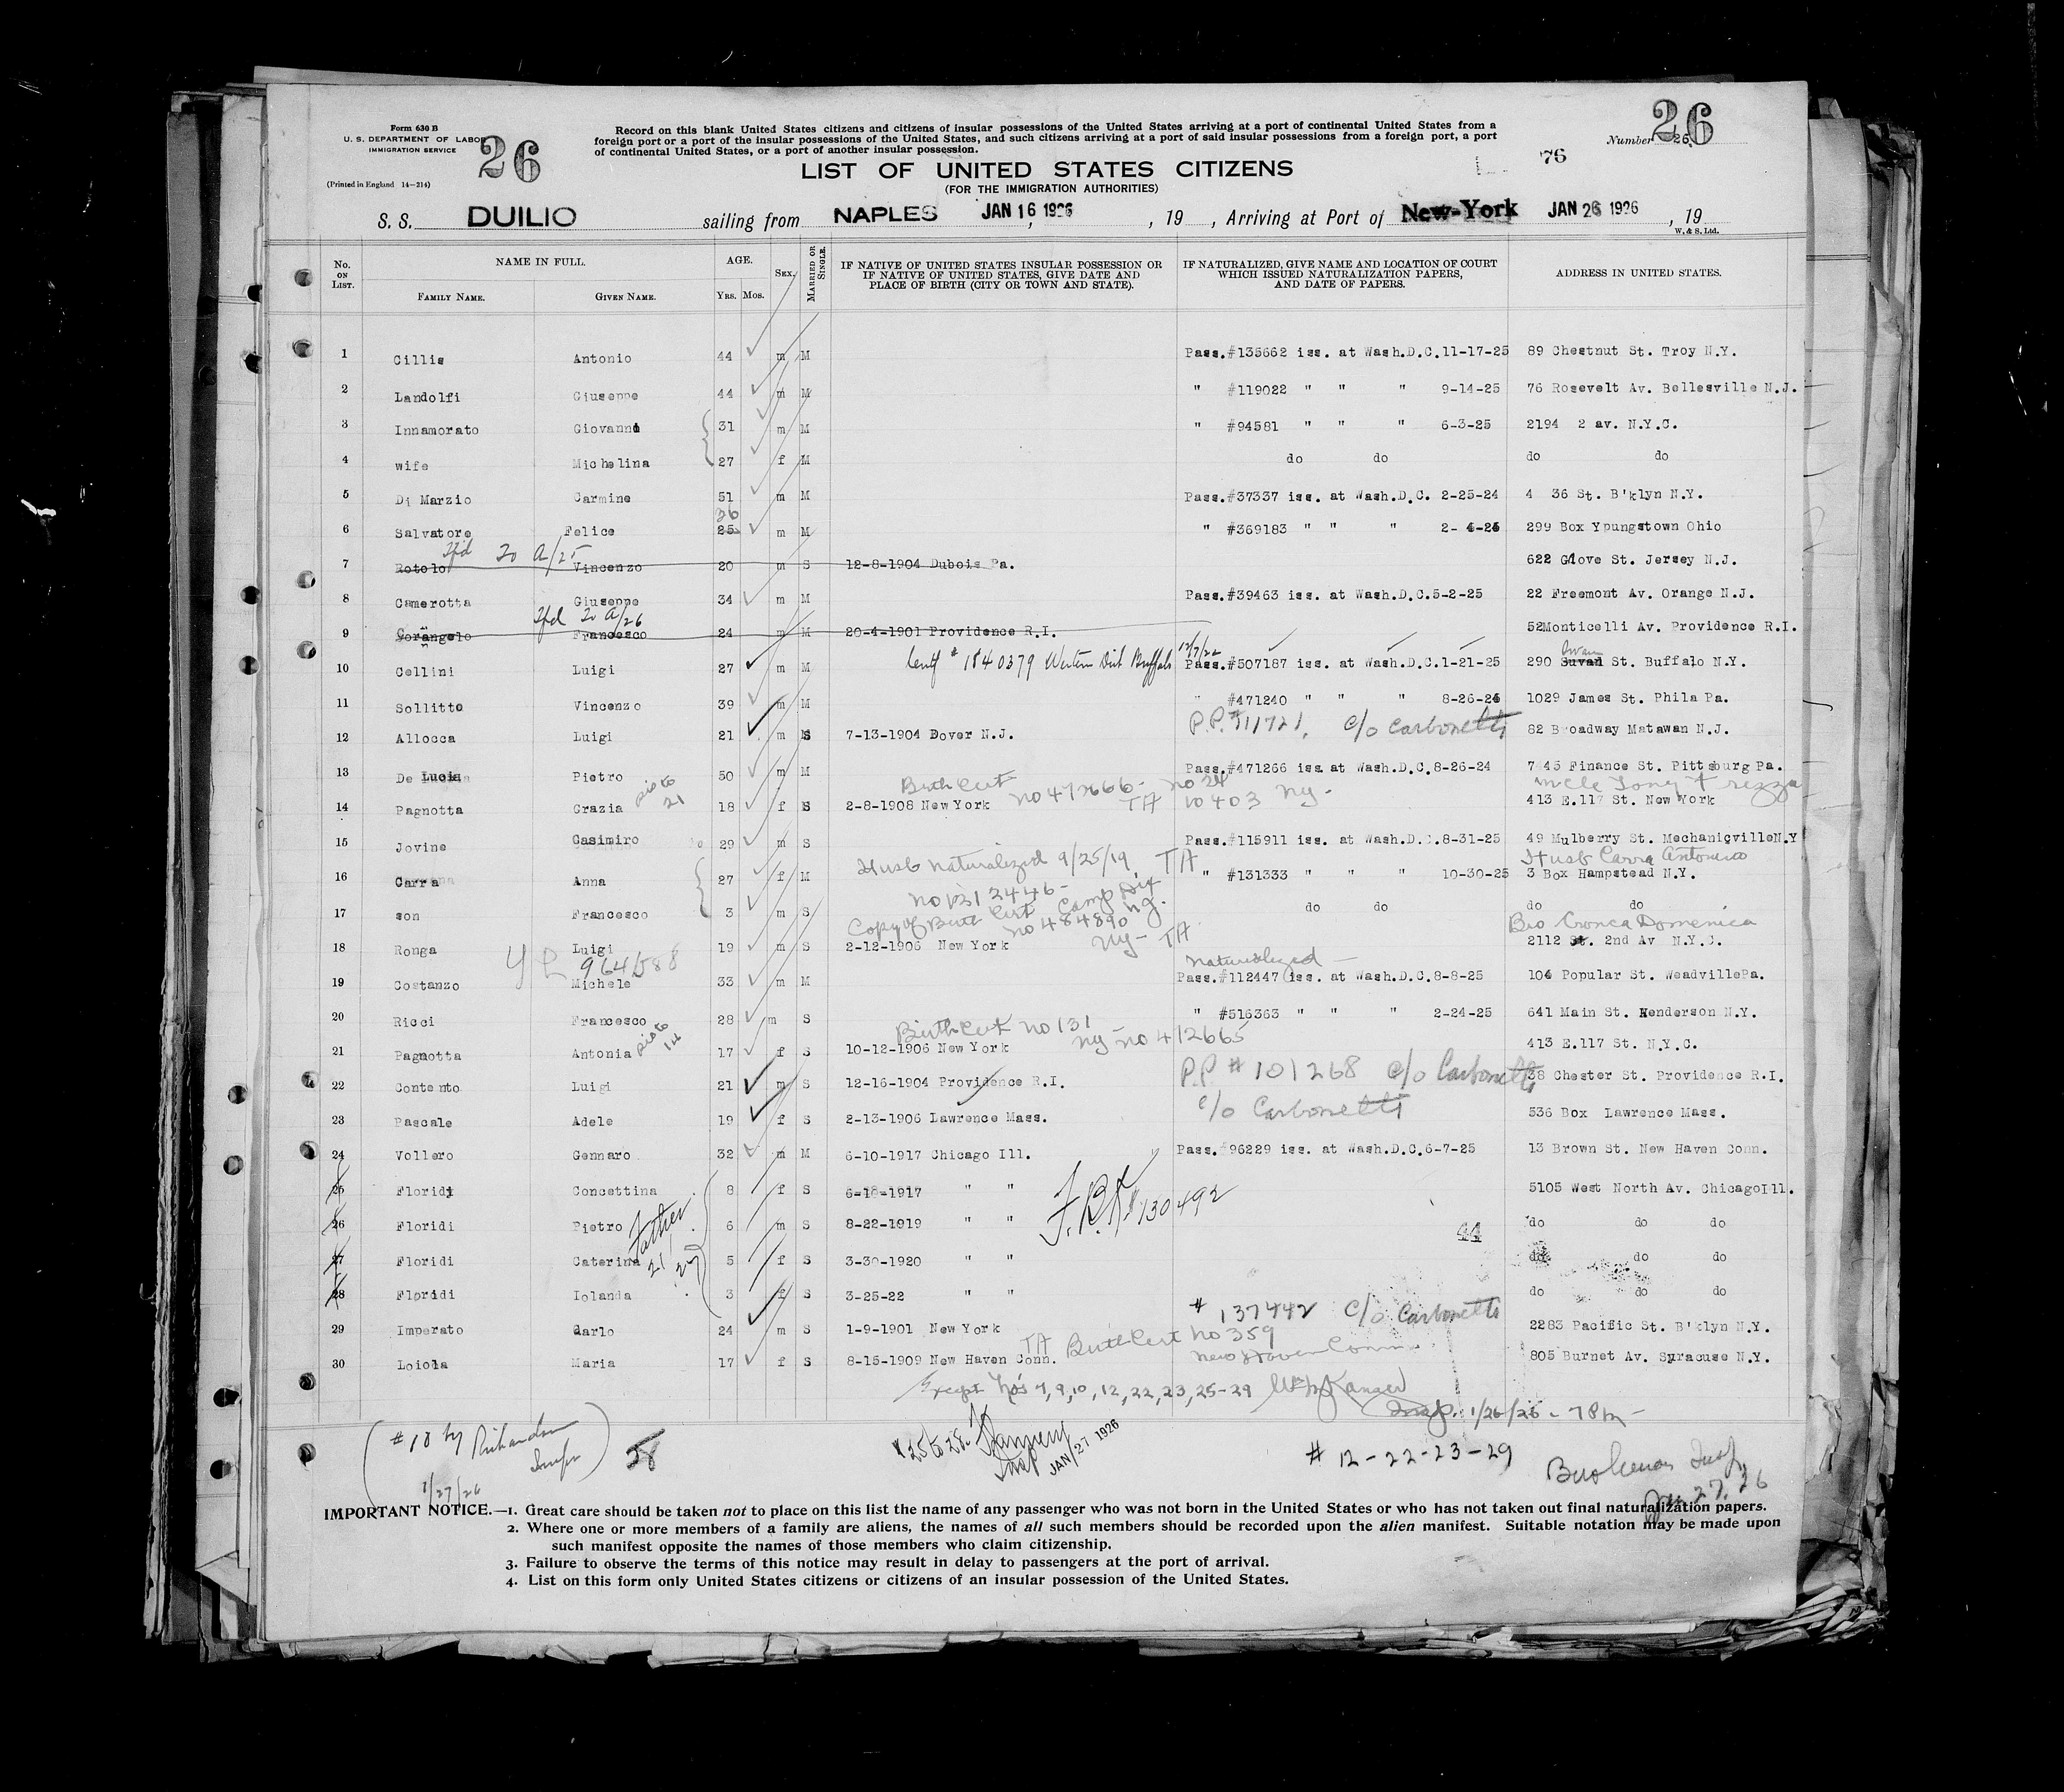 Form 630 B
U. S. DEPARTMENT OF LABOR
IMMIGRATION SERVICE
(Printed in England 14—214)
26
Record on this blank United States citizens and citizens of insular possessions of the United States arriving at a port of continental United States from a
foreign port or a port of the insular possessions of the United States, and such citizens arriving at a port of said insular possessions from a foreign port, a port
of continental United States, or a port of another insular possession.
Number 25.
26
76
LIST OF UNITED STATES CITIZENS
(FOR THE IMMIGRATION AUTHORITIES)
S. S. DUILIO sailing from NAPLES JAN 16 1926, 19 , Arriving at Port of New-York JAN 26 1926, 19
W. & S. Ltd.
No. ON LIST. NAME IN FULL. FAMILY NAME. GIVEN NAME. AGE. YRS. MOS. SEX. MARRIED OR SINGLE. IF NATIVE OF UNITED STATES INSULAR POSSESSION OR IF NATIVE OF UNITED STATES, GIVE DATE AND PLACE OF BIRTH (CITY OR TOWN AND STATE). IF NATURALIZED, GIVE NAME AND LOCATION OF COURT WHICH ISSUED NATURALIZATION PAPERS, AND DATE OF PAPERS. ADDRESS IN UNITED STATES.
1 Cillis Antonio 44 m M Pass.#135662 iss. at Wash.D.C.11-17-25 89 Chestnut St. Troy N.Y.
2 Landolfi Giuseppe 44 m M " #119022 " " " 9-14-25 76 Rosevelt Av. Bellesville N.J.
3 Innamorato Giovanni 31 m M " #94581 " " " 6-3-25 2194 2 av. N.Y.C.
4 wife Michelina 27 f M do do do do
5 Di Marzio Carmine 51 m M Pass.#37337 iss. at Wash.D.C. 2-25-24 4 36 St. B'klyn N.Y.
36
6 Salvatore Felice 25 m M " #369183 " " " 2- 4-26 299 Box Ypungstown Ohio
Tfd To A/25
7 Rotolo Vincenzo 20 m S 12-8-1904 Dubois Pa. 622 Glove St. Jersey N.J.
8 Camerotta Giuseppe 34 m M Pass.#39463 iss. at Wash.D.C.5-2-25 22 Freemont Av. Orange N.J.
Tfd To A/26
9 Francesco 24 m M 20-4-1901 Providence R.I. 52Monticelli Av. Providence R.I.
Cert # 1840379 Western Dist Buffalo 12/7/22
10 Cellini Luigi 27 m M Pass.#507187 iss. at Wash.D.C.1-21-25 290 Suvan St. Buffalo N.Y.
11 Sollitto Vincenzo 39 m M " #471240 " " " 8-26-24 1029 James St. Phila Pa.
P.P.#111721, c/o Carbonetti
12 Allocca Luigi 21 m S 7-13-1904 Dover N.J. 82 Broadway Matawan N.J.
13 De Lucia Pietro 50 m M Pass.#471266 iss. at Wash.D.C.8-26-24 7445 Finance St. Pittsburg Pa.
Birth Cert no 472666- TA no 24 10403 Ny-
14 Pagnotta Grazia sis to 21 18 f S 2-8-1908 New York 413 E.117 St. New York
15 Jovine Casimiro 29 m S Pass.#115911 iss. at Wash.D.C.8-31-25 49 Mulberry St. MechanicvilleN.Y
Husb Naturalized 9/25/19 TA Husb Carra Antonio
16 Carra Anna 27 f M " #131333 " " " 10-30-25 3 Box Hampstead N.Y.
17 son Francesco 3 m S do do do do
Copy of Birth Cert no 484890 Ny- TA
18 Ronga Luigi 19 m S 2-12-1906 New York 2112 St. 2nd Av N.Y.C.
Naturalized —
19 Costanzo Michele 33 m M Pass.#112447 iss. at Wash.D.C.8-8-25 104 Popular St. WeadvillePa.
20 Ricci Francesco 28 m S " #516363 " " " 2-24-25 641 Main St. Henderson N.Y.
Birth Cert no 131 ny- no 412665
21 Pagnotta Antonia sis to 14 17 f S 10-12-1906 New York 413 E.117 St. N.Y.C.
P.P. # 101268 c/o Carbonetti
22 Contento Luigi 21 m S 12-16-1904 Providence R.I. 38 Chester St. Providence R.I.
c/o Carbonetti
23 Pascale Adele 19 f S 2-13-1906 Lawrence Mass. 536 Box Lawrence Mass.
24 Vollero Gennaro 32 m M 6-10-1917 Chicago Ill. Pass.#96229 iss. at Wash.D.C.6-7-25 13 Brown St. New Haven Conn.
25 Floridi Concettina 8 f S 6-18-1917 " " 5105 West North Av. ChicagoIll.
#130492
26 Floridi Pietro 6 m S 8-22-1919 " " do do do
Father
44
27 Floridi Caterina 5 f S 3-30-1920 " " do do do
28 Floridi Iolanda 3 f S 3-25-22 " " do do do
# 137442 c/o Carbonetti
29 Imperato Carlo 24 m S 1-9-1901 New York 2283 Pacific St. B'klyn N.Y.
TA Birth Cert no 359 New Haven Conn
30 Loiola Maria 17 f S 8-15-1909 New Haven Conn. 805 Burnet Av. Syracuse N.Y.
Except No's 7,9,10,12,22,23,25-29
Insp. 1/26/26
(#10 by Richardson Inspr) 1/27/26
#25 to 28. Insp JAN 27 1926
# 12-22-23-29
Insp, Jan 27.26
IMPORTANT NOTICE.—1. Great care should be taken not to place on this list the name of any passenger who was not born in the United States or who has not taken out final naturalization papers.
2. Where one or more members of a family are aliens, the names of all such members should be recorded upon the alien manifest. Suitable notation may be made upon
such manifest opposite the names of those members who claim citizenship.
3. Failure to observe the terms of this notice may result in delay to passengers at the port of arrival.
4. List on this form only United States citizens or citizens of an insular possession of the United States.